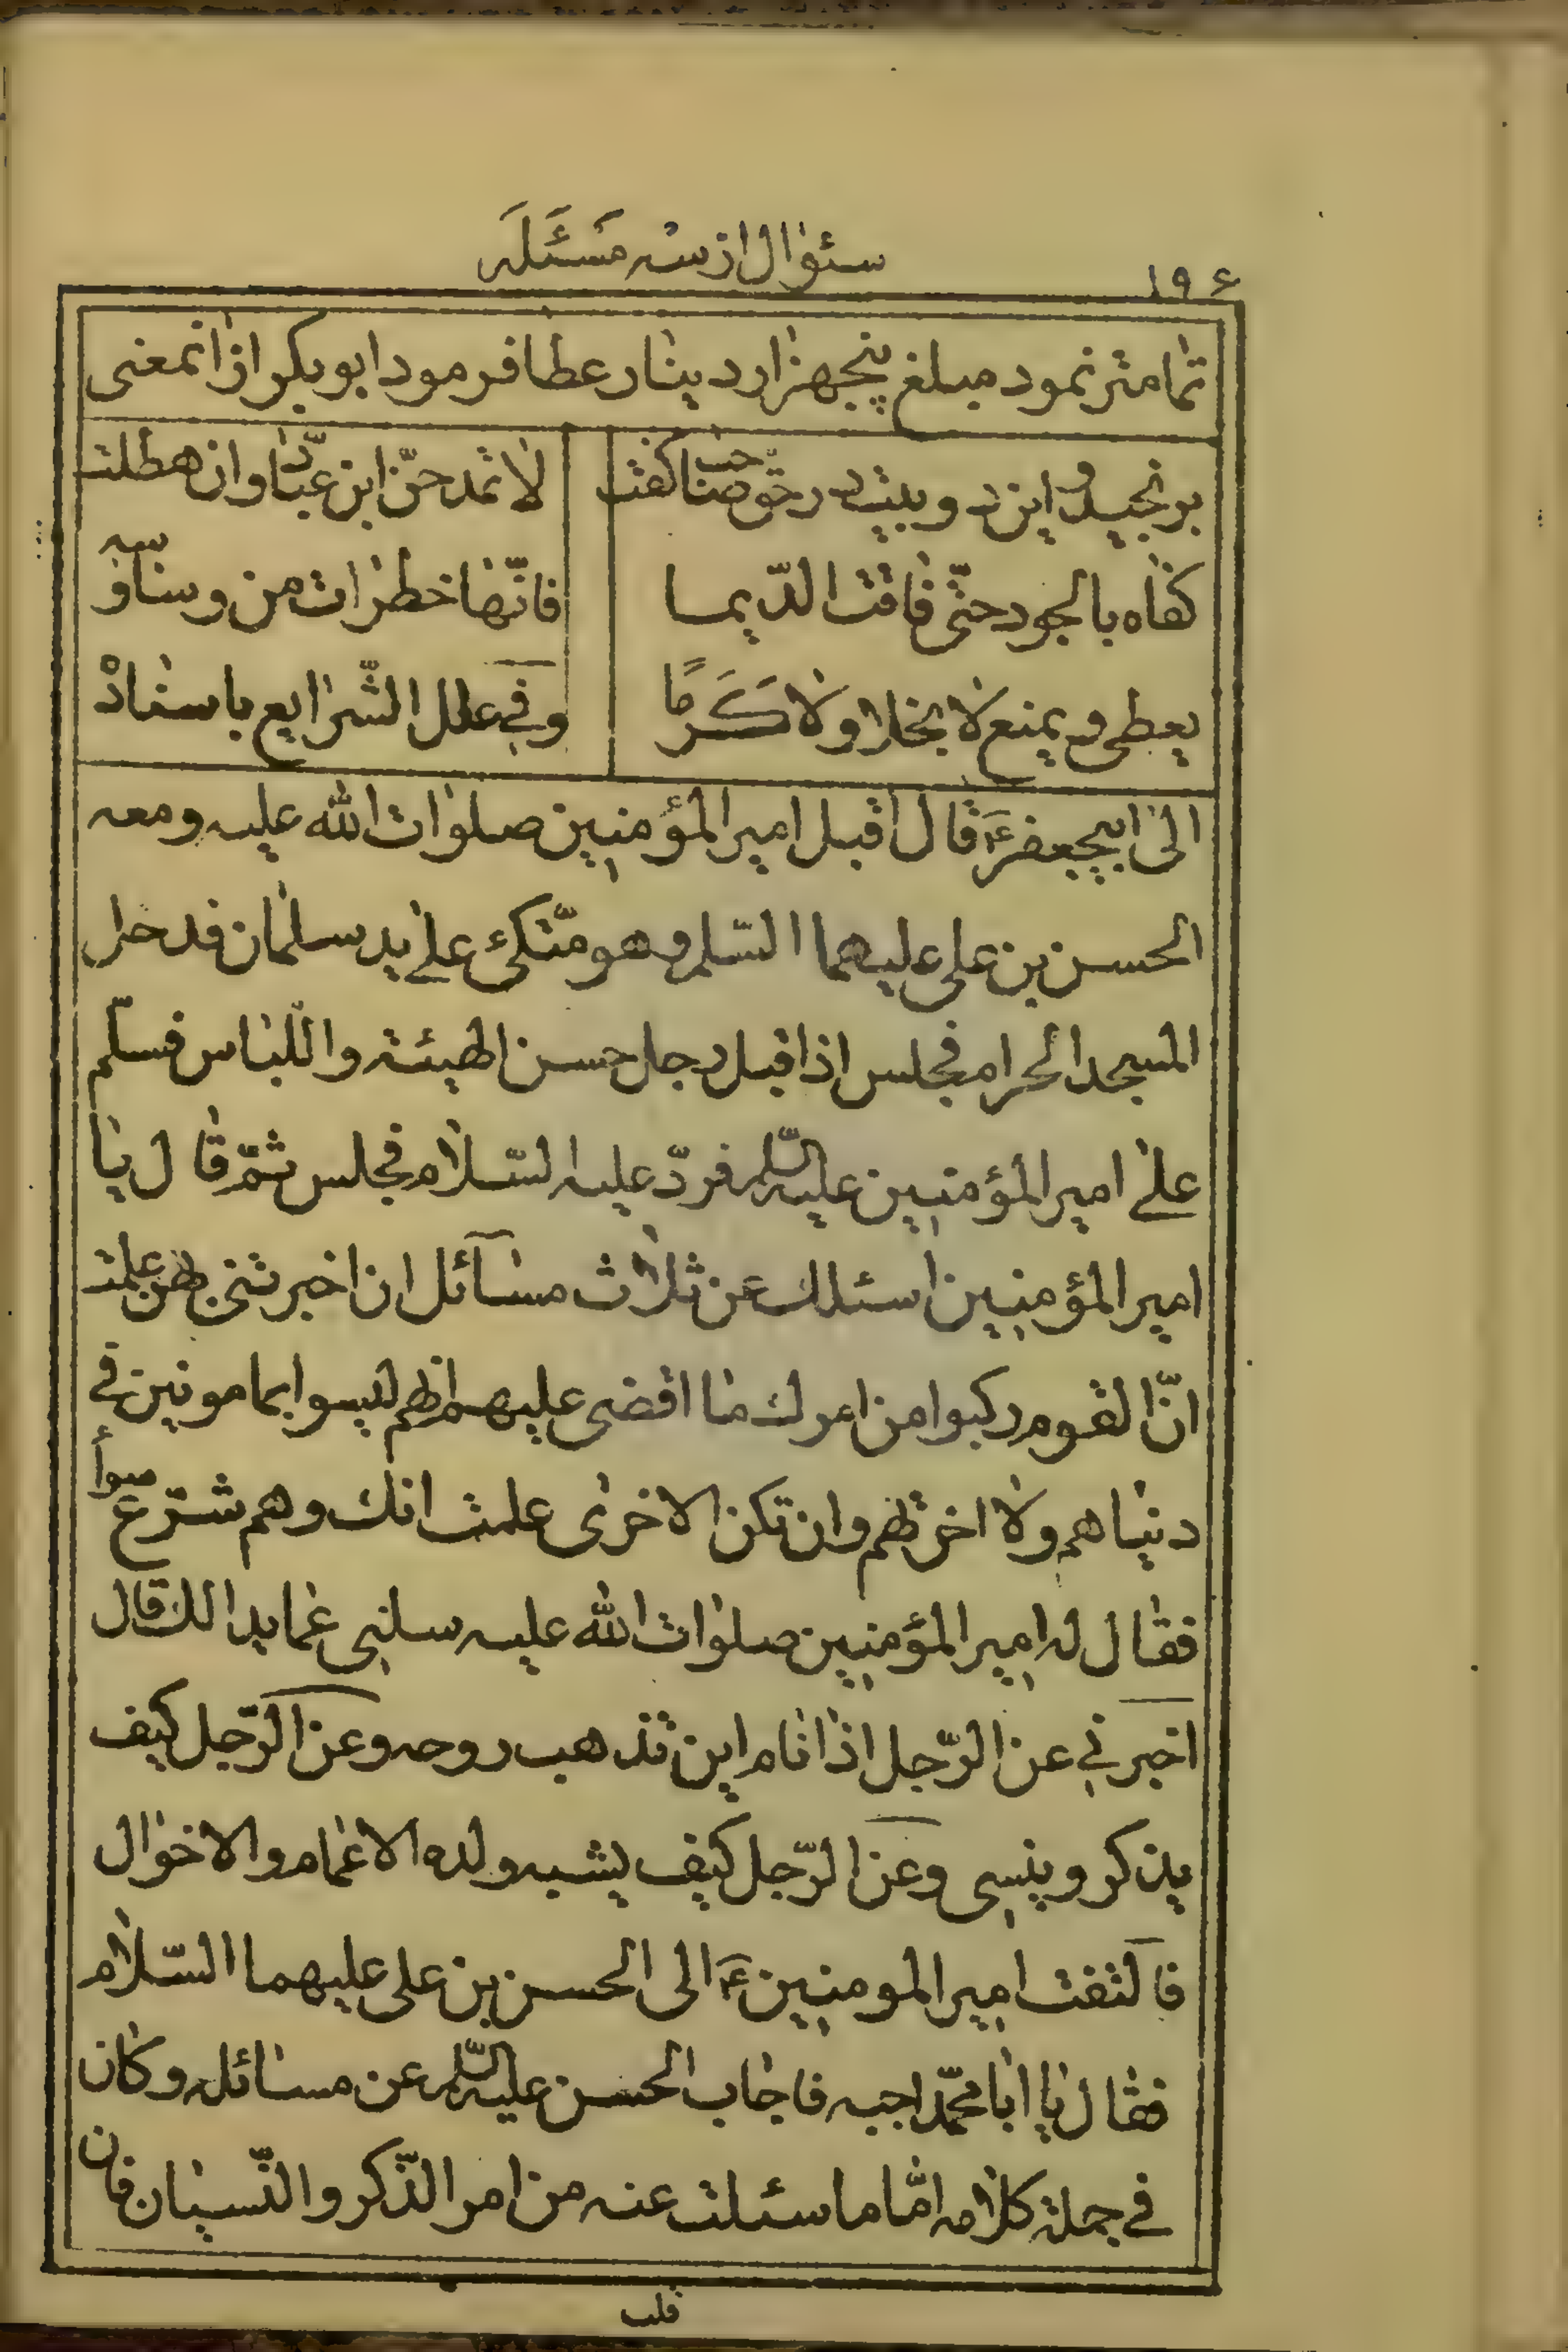 سئوال از سه مسئله
۱۹۶
تمامتر نمود مبلغ پنجهزار دینار عطا فرمود ابو بکر ازانمعنی
برنجید و این دو بیت در حق صاحب گفت
لا تمدحن ابن عبّاد وان هطلت
کفاه بالجود حتّی فاقت الدّیما
فانّها خطرات من وساوسه
یعطی و یمنع لا بخلا ولا کَرَمًا
وفی علل الشّرایع باسناده
الی ابیجعفر ع قال اقبل امیر المؤمنین صلوات الله علیه ومعه
الحسن بن علی علیهما السّلم وهو متّکئ علی ید سلمان فدخل
المسجد الحرام فجلس اذا قبل رجل حسن الهیئة واللّباس فسلّم
علی امیر المؤمنین علیه السّلم فردّ علیه السّلام فجلس ثمّ قال یا
امیر المؤمنین اسئلك عن ثلاث مسآئل ان اخبرتنی بهن علمت
انّ القوم رکبوا من امرك ما اقضی علیهم انهم لیسوا بمامونین فی
دنیاهم ولا اخرتهم وان تکن الاخری علمت انك وهم شرّع سوأ
فقال له امیر المؤمنین صلوات الله علیه سلنی عما بدا لك قال
اخبرنی عن الرّجل اذا نام این تذهب روحه وعن الرّجل کیف
یذکر وینسی وعن الرّجل کیف یشبه ولده الاعمام والاخوال
فالتفت امیر المومنین ع الی الحسن بن علی علیهما السّلام
فقال یا ابا محمّد اجبه فاجاب الحسن علیه السّلم عن مسائله وکان
فی جملة کلامه امّا ما سئلت عنه من امر الذّکر والنّسیان فان
قلب